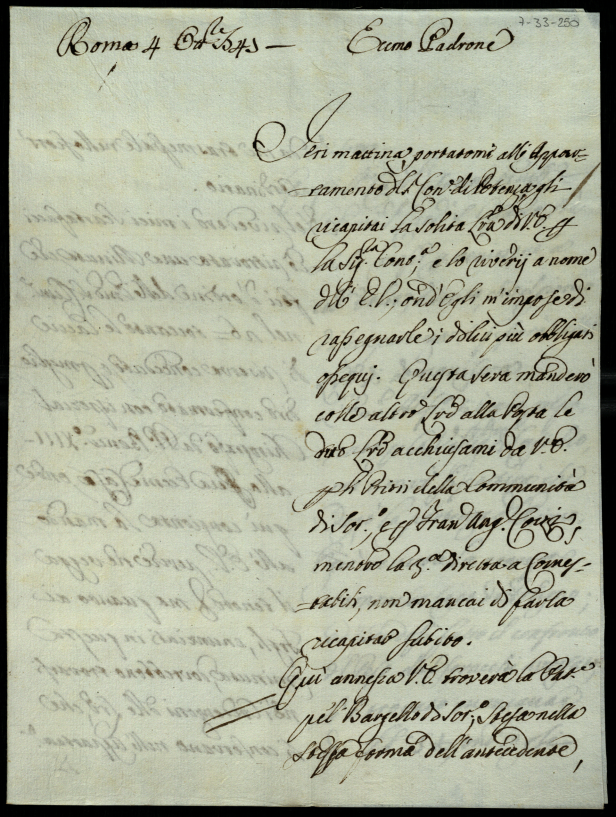 7-33-250
Roma 4 — Eccmo Padrone
Ieri mattina, portatomi all' Appar-
tamento del Con. di Potenza gli
ricapitai la solita Lra di V.E. p
la Sig.ra ; e lo riverij a nome
dell' E.V., ond' Egli m' impose di
rassegnarle i di lui più obbligati
ossequj. Questa sera manderò
colle altre Lre alla Posta le
due Lre acchiusami da V.E.
p li Priori della Communità
di Sor.o, e p Fran. Ang.
mentre la 3.a diretta a Contes-
tabili, non mancai di farla
ricapitar subito.
Qui annessa V.E. troverà la Pat.e
pel Bargello di Sor.o, stesa nella
stessa forma dell' antecedente,